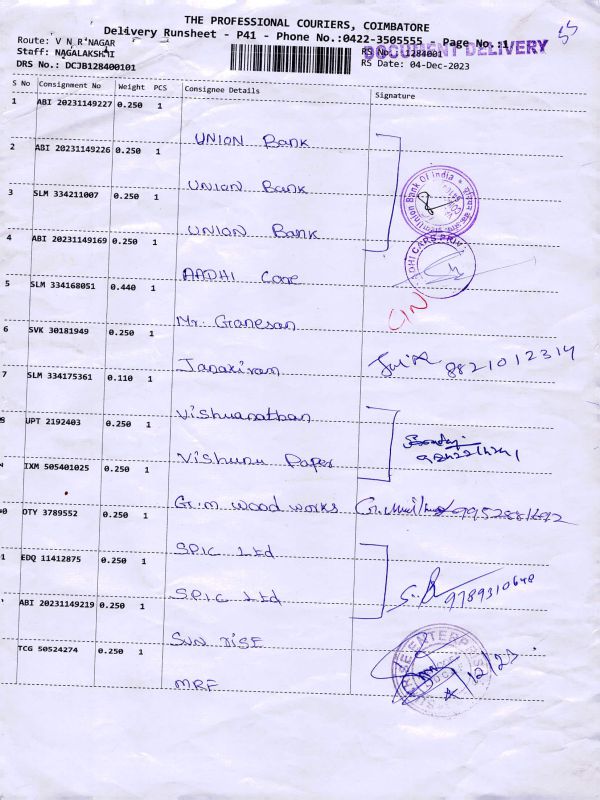 THE PROFESSIONAL COURIERS, COIMBATORE
Delivery Runsheet - P41 - Phone No.:0422-3505555 - Page No.:1/
DOCUMENT DELIVERY
55
Route: V N R NAGAR
Staff: NAGALAKSHMI
RS No.: 1284001
DRS No.: DCJB128400101
RS Date: 04-Dec-2023
S No Consignment No Weight PCS Consignee Details Signature
1 ABI 20231149227 0.250 1
UNION Bank
2 ABI 20231149226 0.250 1
UNION Bank
3 SLM 334211007 0.250 1
UNION Bank
Union Bank of India
4 ABI 20231149169 0.250 1
AADHI Care
ADHI CARS PRIV
5 SLM 334168051 0.440 1
Mr. Ganesan
C/N
6 SVK 30181949 0.250 1
Janakiram
8821012314
7 SLM 334175361 0.110 1
Vishwanathan
UPT 2192403 0.250 1
Vishunu Paper
IXM 505401025 0.250 1
G.M wood works
0 OTY 3789552 0.250 1
SPIC Ltd
1 EDQ 11412875 0.250 1
SPIC Ltd
9789310648
ABI 20231149219 0.250 1
SUN DISE
ENTERPRISES
TCG 50524274 0.250 1
4/12/23
MRF